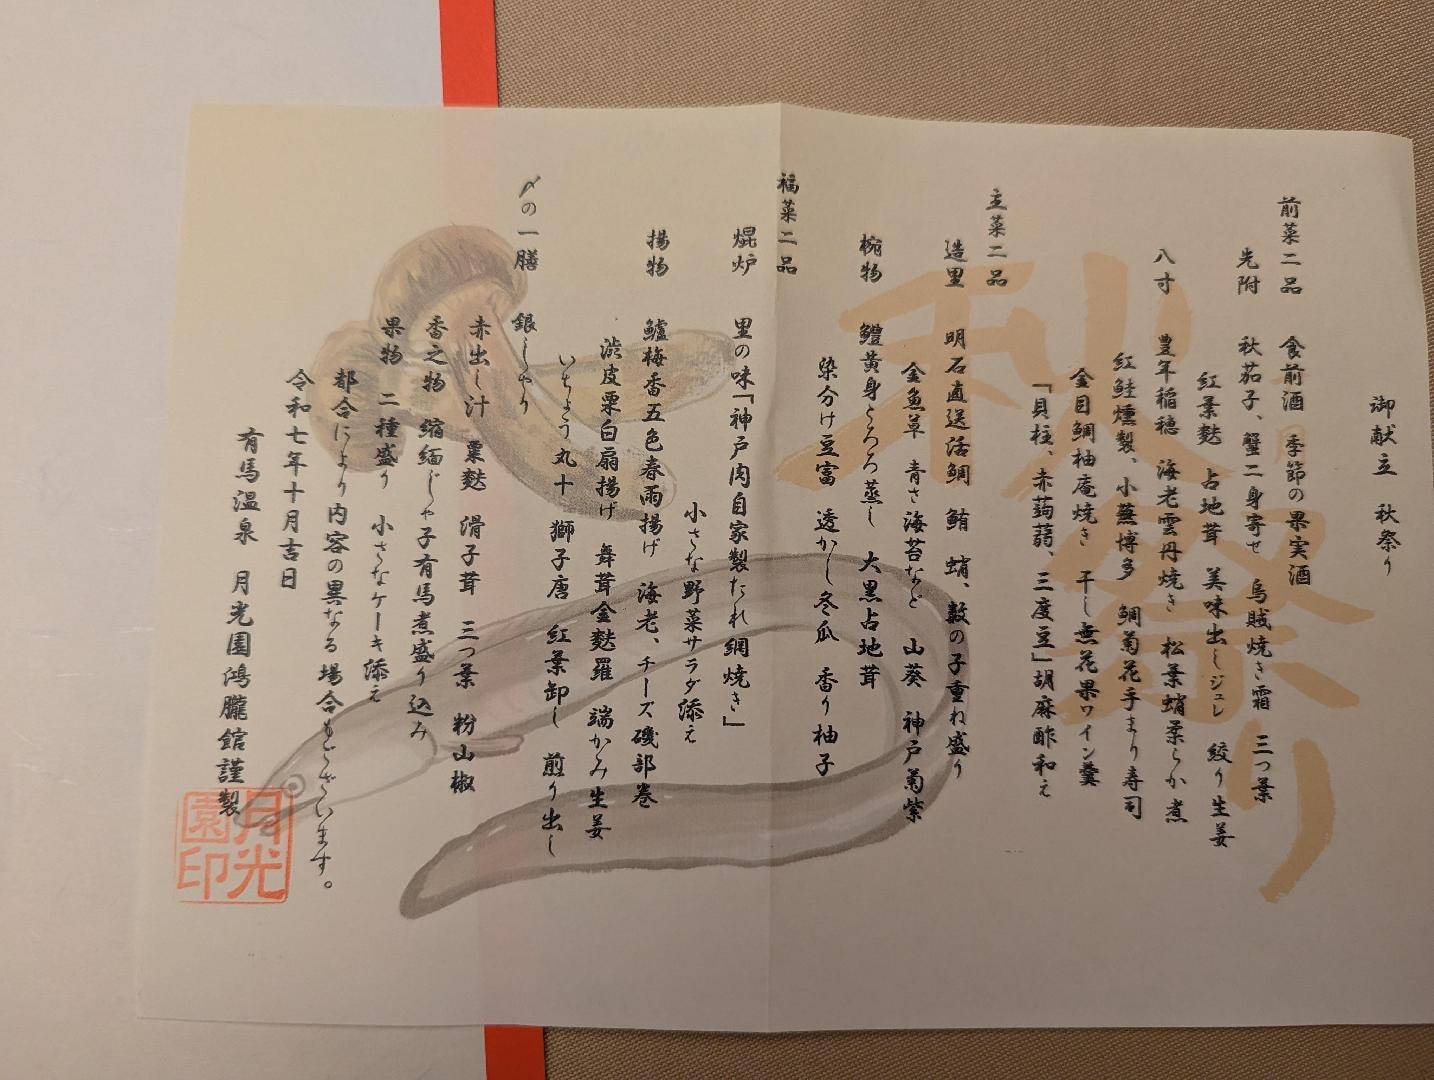 御献立 秋祭り
前菜二品 食前酒 季節の果実酒
先附 秋茄子、蟹二身寄せ 烏賊焼き霜 三つ葉
紅葉麩 占地茸 美味出しジュレ 絞り生姜
八寸 豊年稲穂 海老雲丹焼き 松葉蛸柔らか煮
紅鮭燻製、小蕪博多 鯛菊花手まり寿司
金目鯛柚庵焼き 干し無花果ワイン羹
「貝柱、赤蒟蒻、三度豆」胡麻酢和え
主菜二品
造里 明石直送活鯛 鮪 蛸、数の子重ね盛り
金魚草 青さ海苔など 山葵 神戸菊紫
椀物 鱧黄身とろろ蒸し 大黒占地茸
染分け豆富 透かし冬瓜 香り柚子
福菜二品
焜炉 里の味「神戸肉自家製たれ網焼き」
小さな野菜サラダ添え
揚物 鱸梅香五色春雨揚げ 海老、チーズ磯部巻
渋皮栗白扇揚げ 舞茸金麩羅 端かみ生姜
いちょう丸十 獅子唐 紅葉卸し 煎り出し
〆の一膳 銀しゃり
赤出し汁 粟麩 滑子茸 三つ葉 粉山椒
香之物 縮緬じゃ子有馬煮盛り込み
果物 二種盛り 小さなケーキ添え
都合により内容の異なる場合もございます。
令和七年十月吉日
有馬温泉 月光園鴻朧館謹製
月光園印
秋祭り